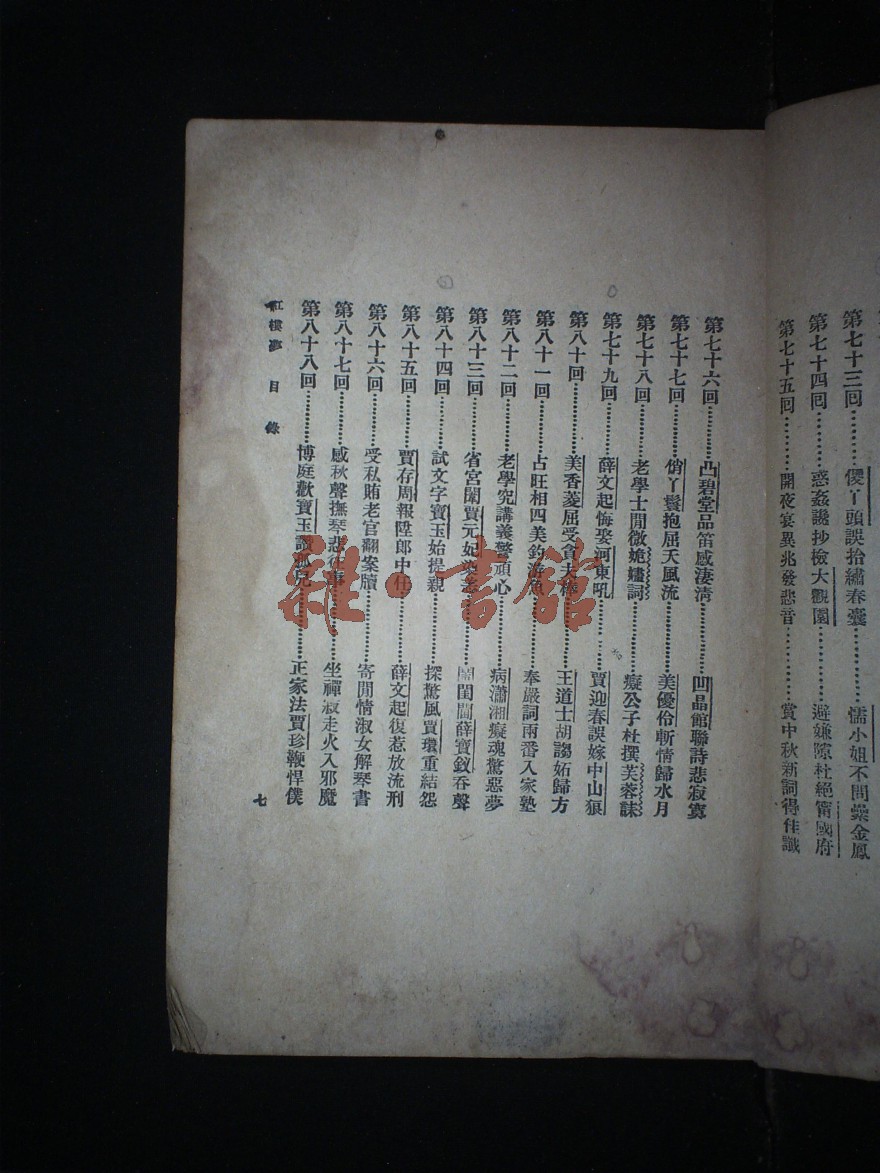 第七十三回 儍丫頭誤拾繡春囊 懦小姐不問纍金鳳
第七十四回 惑姦讒抄檢大觀園 避嫌隙杜絕甯國府
第七十五回 開夜宴異兆發悲音 賞中秋新詞得佳讖
第七十六回 凸碧堂品笛感淒淸 凹晶館聯詩悲寂寞
第七十七回 俏丫鬟抱屈夭風流 美優伶斬情歸水月
第七十八回 老學士閒徵姽嫿詞 癡公子杜撰芙蓉誄
第七十九回 薛文起悔娶河東吼 賈迎春誤嫁中山狼
第八十回 美香菱屈受貪夫棒 王道士胡謅妬歸方
第八十一回 占旺相四美釣游魚 奉嚴詞兩番入家塾
第八十二回 老學究講義警頑心 病瀟湘癡魂驚惡夢
第八十三回 省宮闈賈元妃染恙 鬧閨閫薛寶釵吞聲
第八十四回 試文字寶玉始提親 探驚風賈環重結怨
第八十五回 賈存周報陞郎中任 薛文起復惹放流刑
第八十六回 受私賄老官翻案牘 寄閒情淑女解琴書
第八十七回 感秋聲撫琴悲往事 坐禪寂走火入邪魔
第八十八回 博庭歡寶玉讚孤兒 正家法賈珍鞭悍僕
紅樓夢 目錄 七
雜·書館